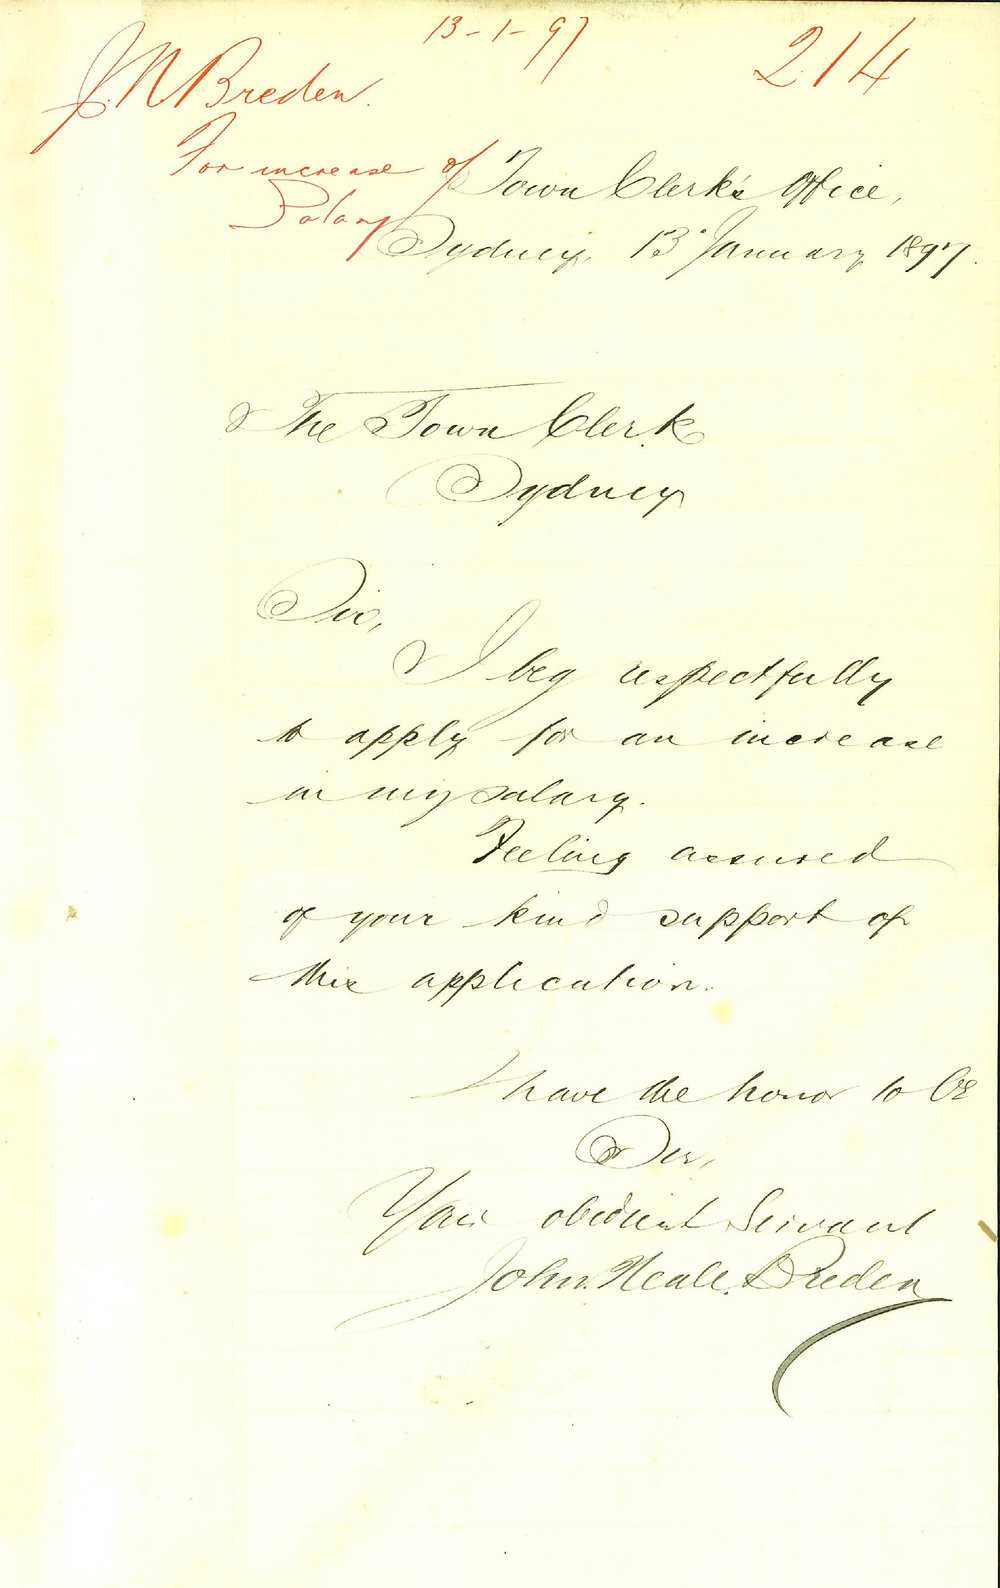 13-1-97
214
J.N Breden.
For increase of
Salary
Town Clerk's Office,
Sydney, 13 January 1897.
The Town Clerk
Sydney
Sir,
I beg respectfully
to apply for an increase
in my salary.
Feeling assured
of your kind support of
this application.
I have the honor to be
Sir,
Your obedient Servant
John. Neale. Breden